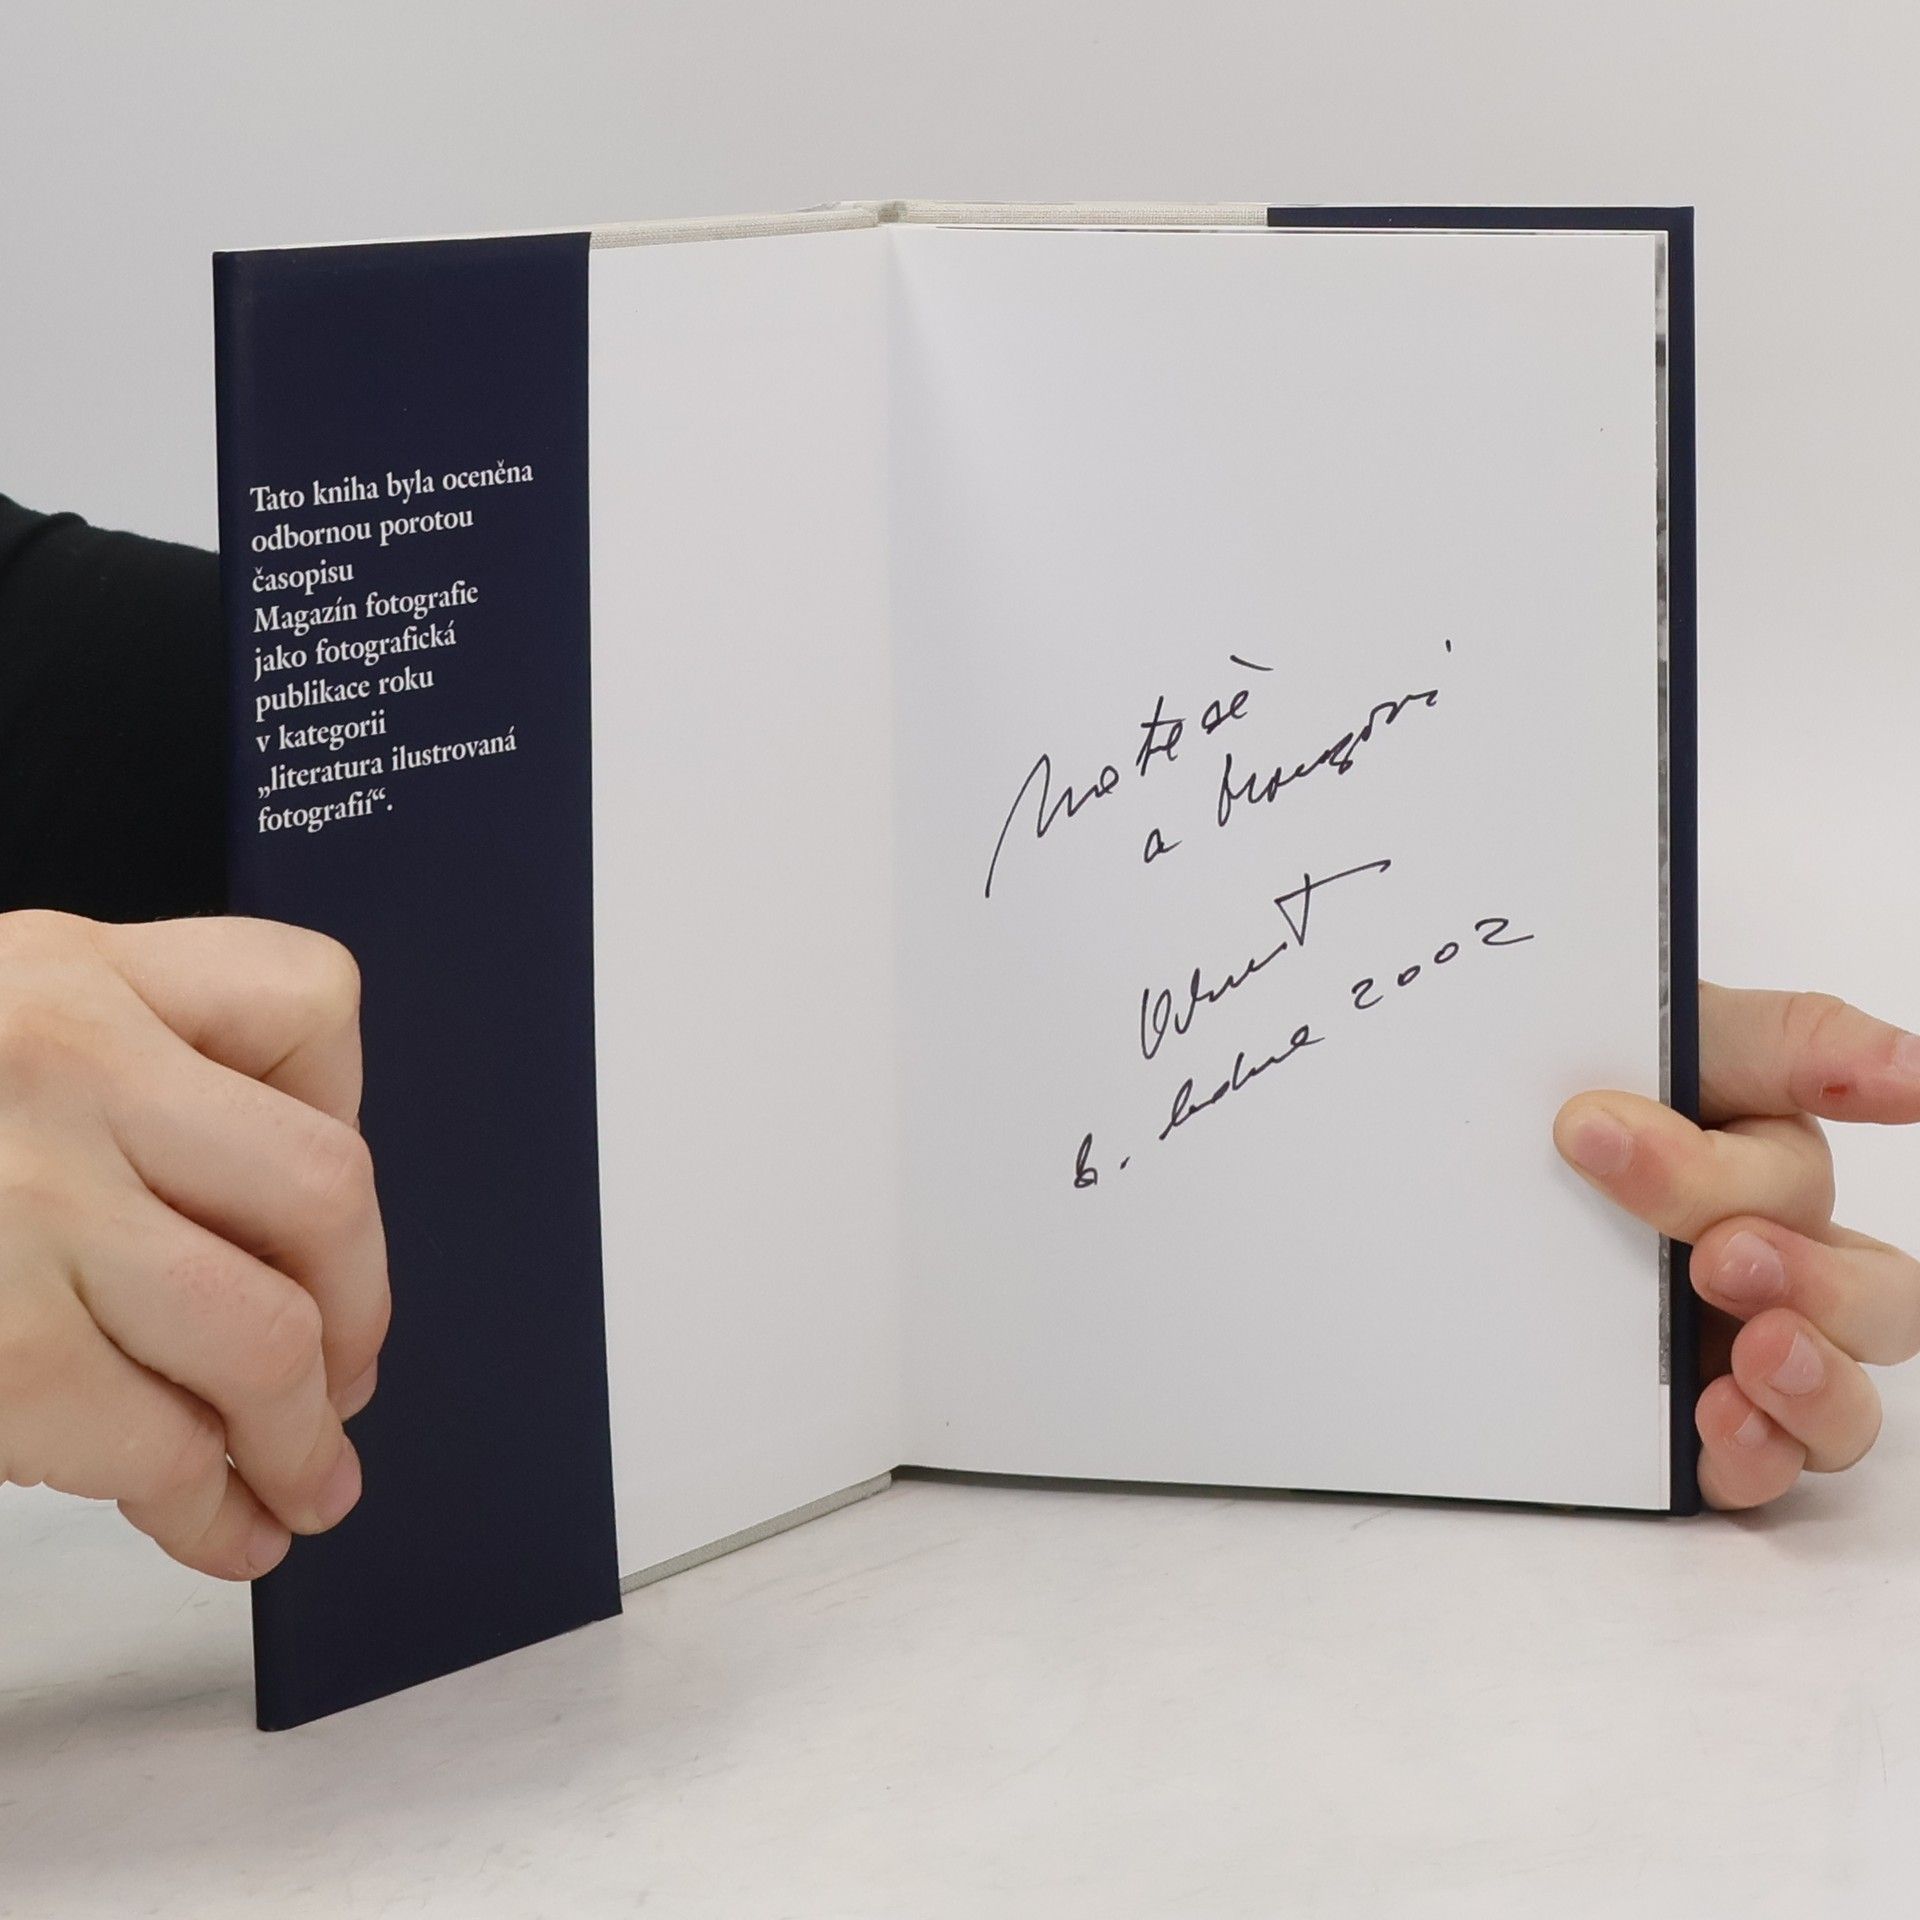 Tato kniha byla oceněna
odbornou porotou
časopisu
Magazín fotografie
jako fotografická
publikace roku
v kategorii
„literatura ilustrovaná
fotografií“.
a
6. ledna 2002